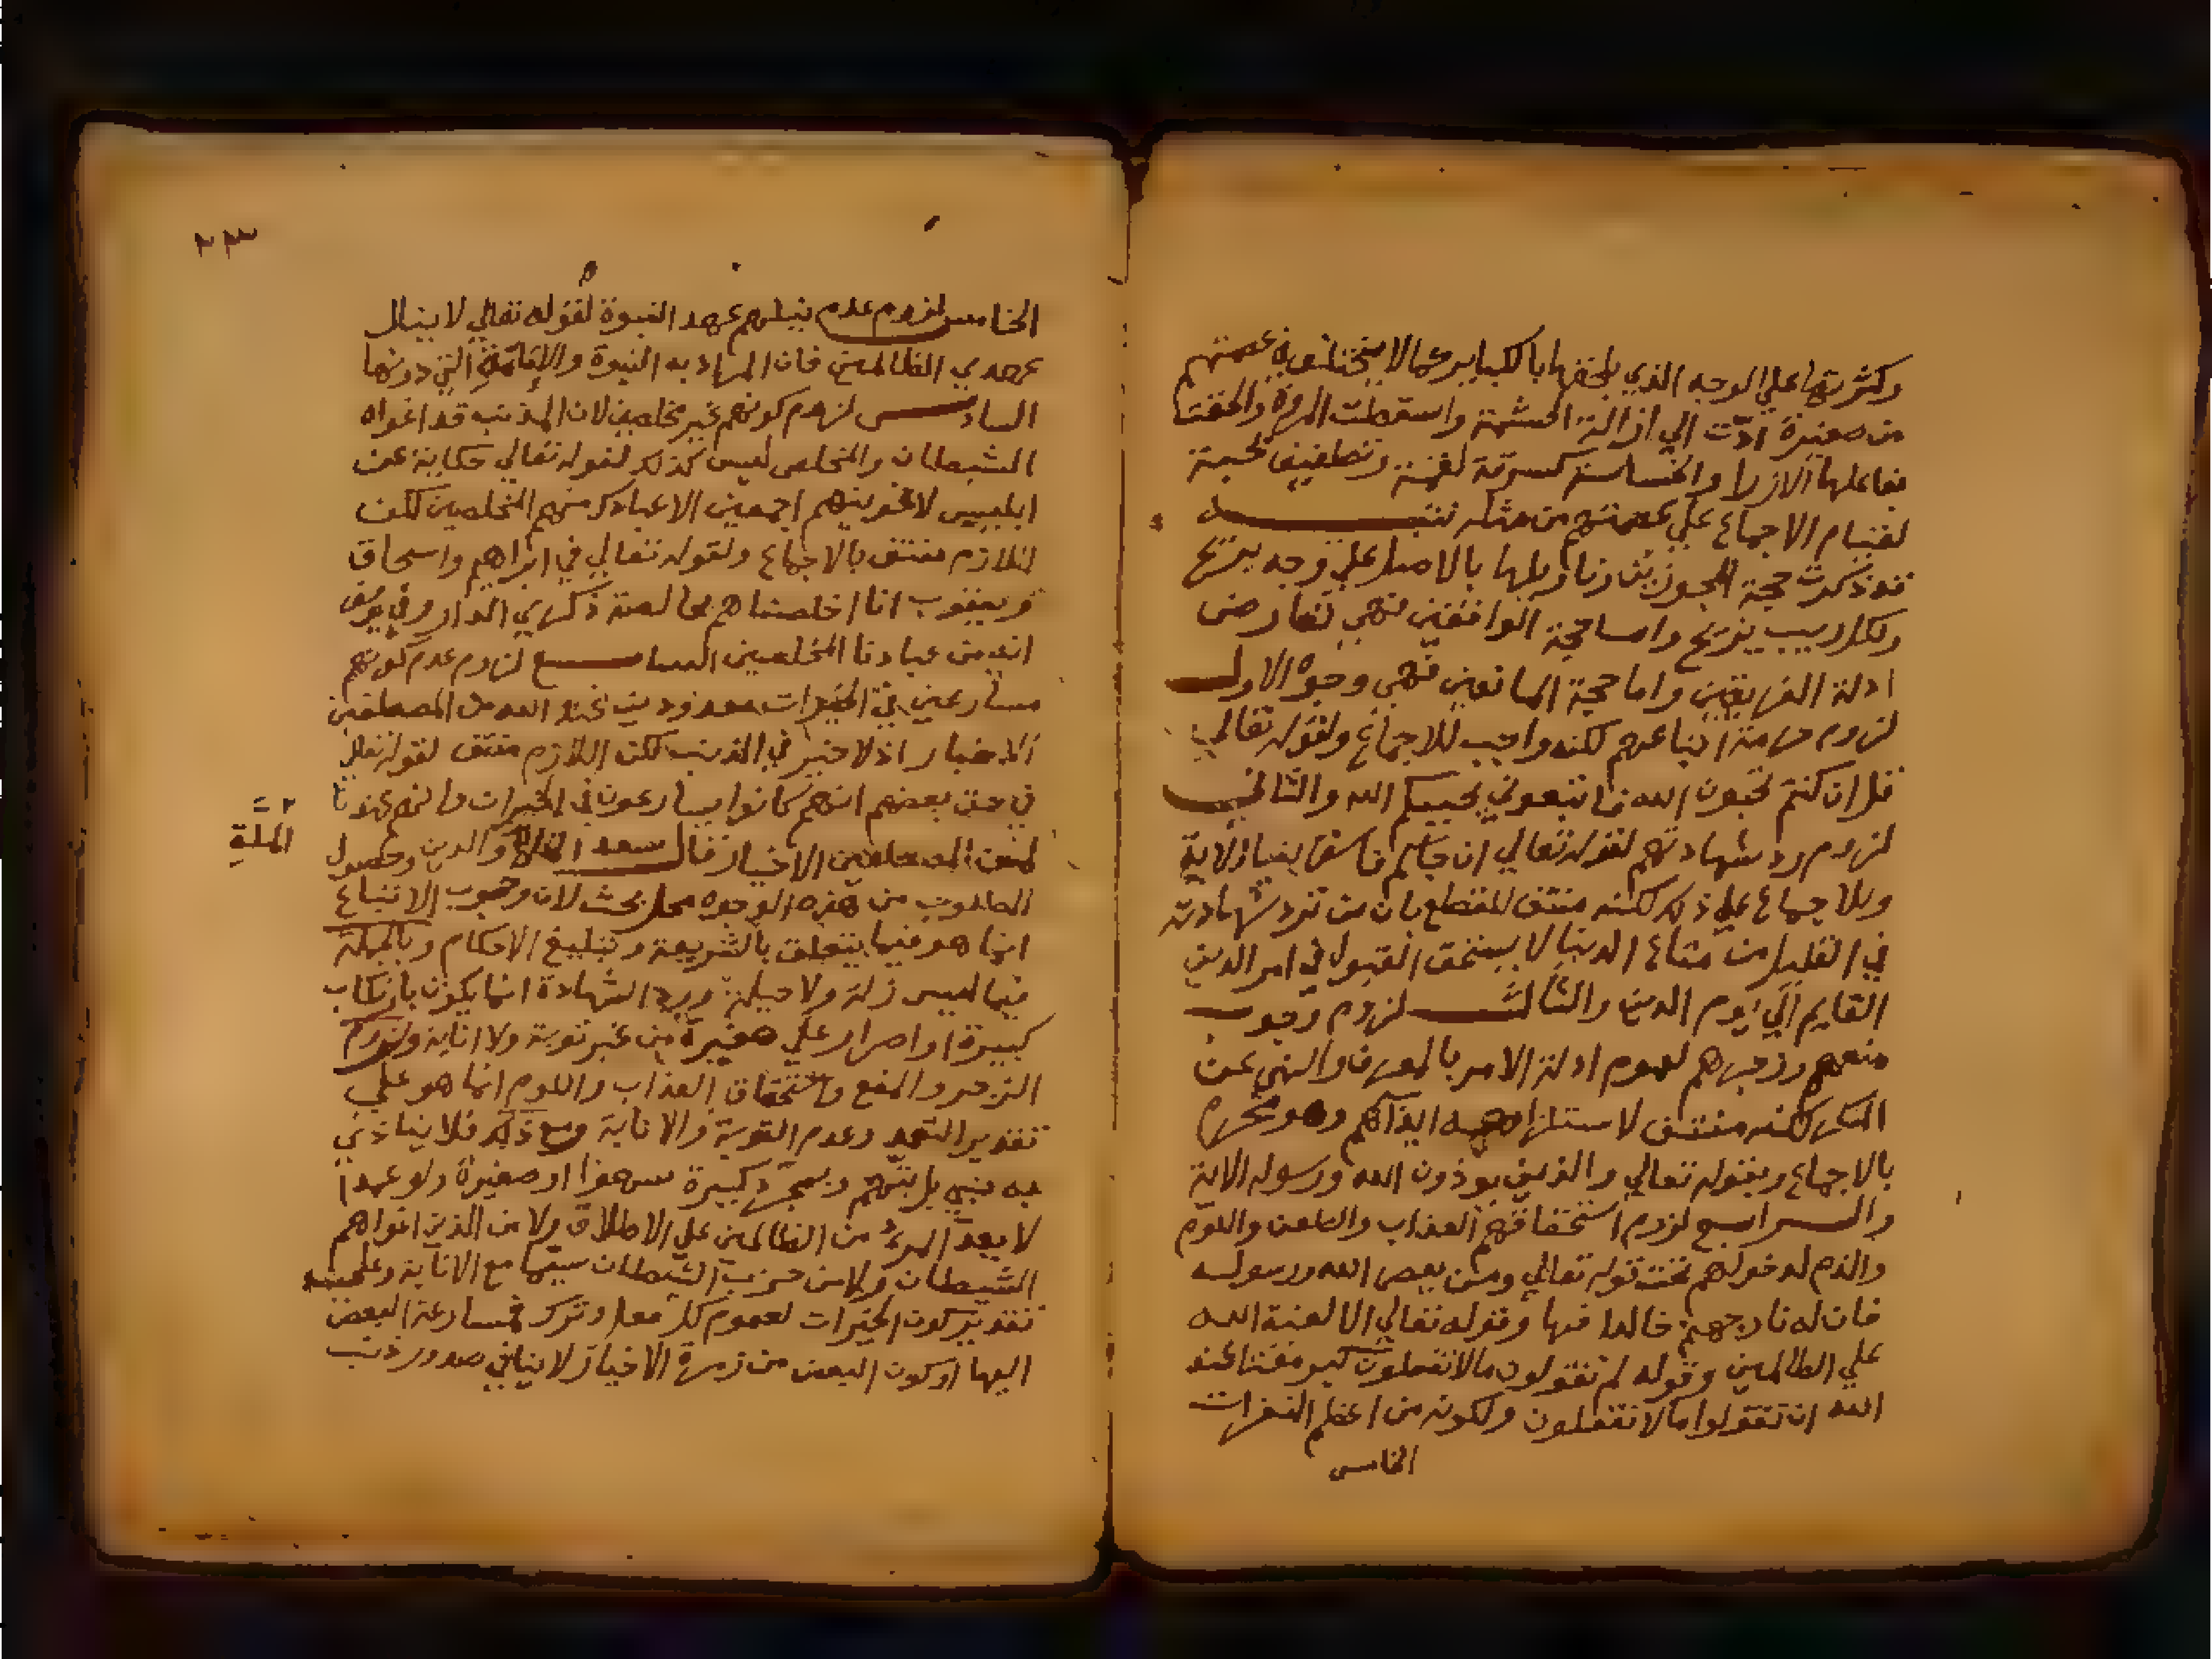 وكثرتها علي الوجه الذي يلحقها بالكباير كما لا يختلف في عصمتهم
من صغيرة ادّت الي ازالة الحشمة واسقطت المروة والحقت
بفاعلها الازرا والخساسة كسرقة لقمة وتطفيف بحبة
لقيام الاجماع علي عصمتهم من مثله تنبيه
قد ذكرت حجة المجوزين وتاويلها بالاصل علي وجه
ولكل ريب يزيح واما حجة الواقفين فهي تعارض
ادلة الفريقين واما حجة المانعين فهي وجوه الاول
لزوم حرمة اتباعهم لكنه واجب للاجماع ولقوله تعالي
قل ان كنتم تحبون الله فاتبعوني يحببكم الله والثاني
لزوم رد شهادتهم لقوله تعالي ان جاكم فاسق بنبا الاية
وللاجماع علي ذلك لكنه منتف للقطع بان من ترد شهادته
في القليل من متاع الدنيا لا يستحق القبول في امر الدين
القايم الي يوم الدين والثالث لزوم وجوب
منعهم وزجرهم لعموم ادلة الامر بالمعروف والنهي عن
المنكر لكنه منتف لاستلزامه ايذآهم وهو محرم
بالاجماع وبقوله تعالي والذين يوذون الله ورسوله الاية
والرابع لزوم استحقاقهم العذاب والطعن واللوم
والذم لدخولهم تحت قوله تعالي ومن يعص الله ورسوله
فان له نار جهنم خالدا فيها وقوله تعالي الا لعنة الله
علي الظالمين وقوله لم تقولون مالا تفعلون كبر مقتا عند
الله ان تقولوا مالا تفعلون ولكونه من اعظم المنفرات
الخامس
٢٣
الخامس لزوم عدم نيلهم عهد النبوة لقوله تعالي لا ينال
عهدي الظالمين فان المراد به النبوة والامامة التي دونها
السادس لزوم كونهم غير مخلصين لان المذنب قد اغواه
الشيطان والمخلص ليس كذلك لقوله تعالي حكاية عن
ابليس لاغوينهم اجمعين الا عبادك منهم المخلصين لكن
اللازم منتف بالاجماع ولقوله تعالي في ابراهيم واسحاق
ويعقوب انا اخلصناهم بخالصة ذكري الدار وفي يوسف
انه من عبادنا المخلصين السابع لزوم عدم كونهم
مسارعين في الخيرات معدودين عند الله من المصطفين
الاخيار اذ لا خير في الذنب لكن اللازم منتف لقوله تعالي
في حق بعضهم انهم كانوا يسارعون في الخيرات وانهم عندنا
لمن المصطفين الاخيار قال سعد والدين وحصول
الملة
المطلوب من هذه الوجوه محل بحث لان وجوب الاتباع
انما هو فيما يتعلق بالشريعة وتبليغ الاحكام وبالجملة
فيما ليس زلة ولا جبلة ورد الشهادة انما يكون بارتكاب
كبيرة او اصرار علي صغيرة من غير توبة ولا انابة ولزوم
الزجر والمنع واستحقاق العذاب واللوم انما هو علي
تقدير التعمد وعدم التوبة والانابة ومع ذلك فلا يتاذي
به نبي بل يبتهج وبمجرد كبيرة سهوا او صغيرة ولو عمدا
لا يعد المرء من الظالمين علي الاطلاق ولا من الذين اغواهم
الشيطان ولا من حزب الشيطان سيما مع الانابة وعلي
تقدير كون الخيرات لعموم كل فعل وترك فمسارعة البعض
اليها او كون البعض من زمرة الاخيار لا ينافي صدور ذنب